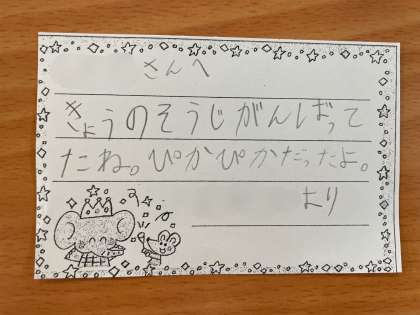 さんへ
きょうのそうじがんばって
たね。ぴかぴかだったよ。
より